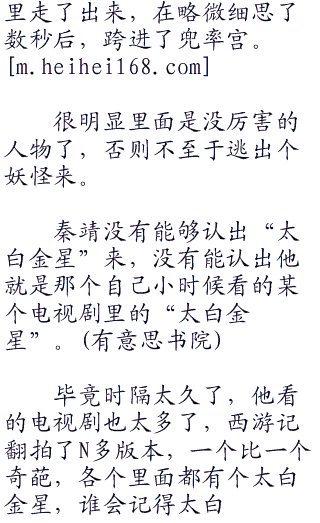 里走了出来，在略微细思了
数秒后，跨进了兜率宫。
[m.heihei168.com]
很明显里面是没厉害的
人物了，否则不至于逃出个
妖怪来。
秦靖没有能够认出“太
白金星”来，没有能认出他
就是那个自己小时候看的某
个电视剧里的“太白金
星”。(有意思书院)
毕竟时隔太久了，他看
的电视剧也太多了，西游记
翻拍了N多版本，一个比一个
奇葩，各个里面都有个太白
金星，谁会记得太白